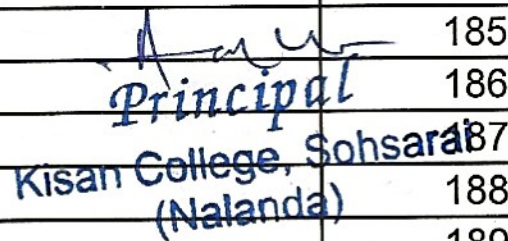 185
Principal 186
Kisan College, Sohsarai 187
(Nalanda) 188
189